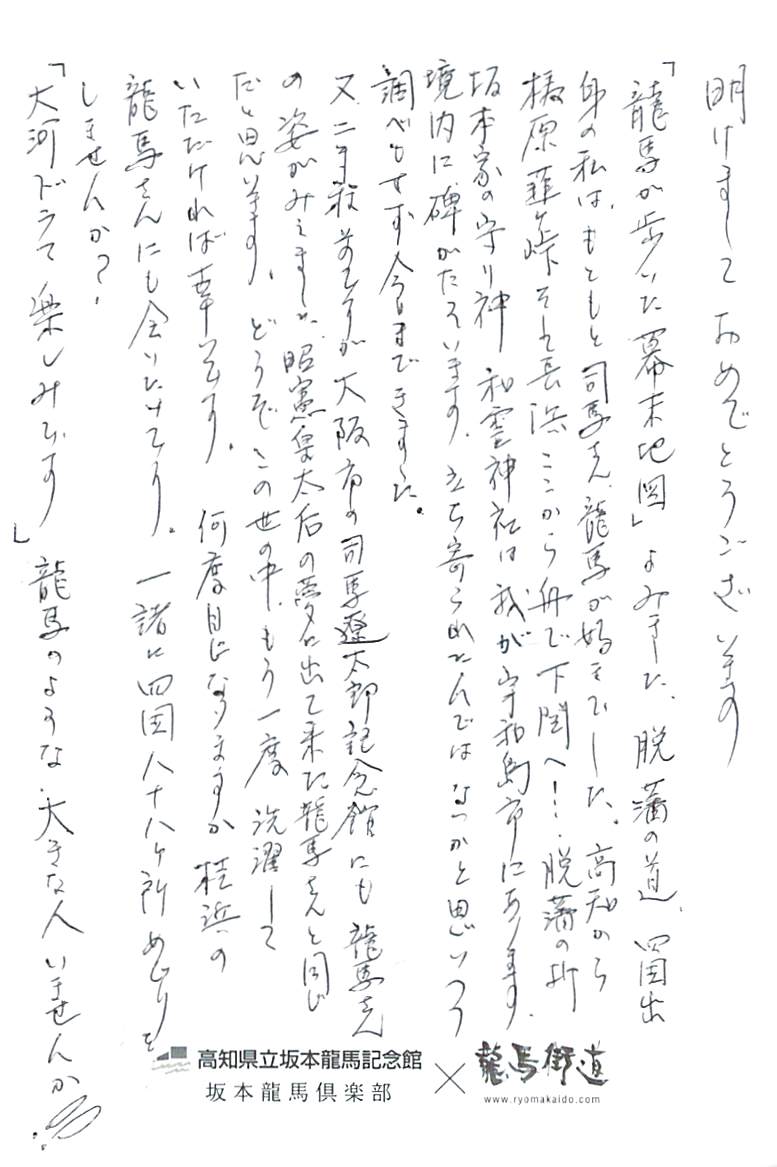 明けましておめでとうございます
「龍馬が歩いた幕末地図」よみました、脱藩の道、四国出
身の私は、もともと司馬さん、龍馬が好きでした。高知から
梼原韮ヶ峠そして長浜ここから舟で下関へ!!脱藩の折
坂本家の守り神 和霊神社は我が宇和島市にあります。
境内に碑がたっています。立ち寄られたんではなっかと思いつつ
調べもせず今日まできました。
又、二年程前ですが大阪市の司馬遼太郎記念館にも龍馬さん
の姿がみえました、昭憲皇太后の夢に出て来た龍馬さんと同じ
だと思います、どうぞこの世の中、もう一度洗濯して
いただければ幸いです。何度目になりますか桂浜の
龍馬さんにも会いたけてり。一諸に四国八十八ヶ所めぐりを
しませんか?
「大河ドラマ楽しみです」龍馬のような大きな人いませんか
高知県立坂本龍馬記念館 × 龍馬街道
坂本龍馬倶楽部
www.ryomakaido.com